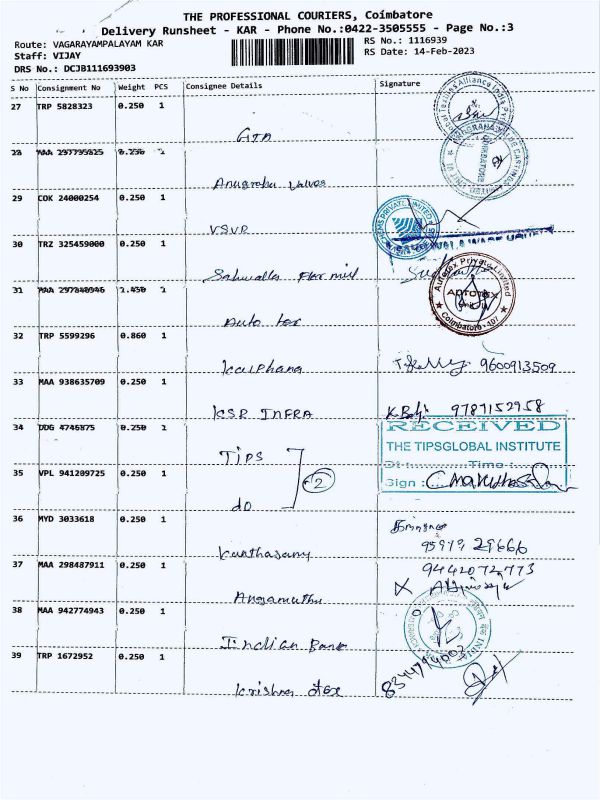 THE PROFESSIONAL COURIERS, Coimbatore
Delivery Runsheet - KAR - Phone No.:0422-3505555 - Page No.:3
Route: VAGARAYAMPALAYAM KAR
RS No.: 1116939
Staff: VIJAY
RS Date: 14-Feb-2023
DRS No.: DCJB111693903
S No Consignment No Weight PCS Consignee Details Signature
27 TRP 5828323 0.250 1
GTA
28 MAA 1
Anugraha Valves
29 COK 24000254 0.250 1
VSVP
30 TRZ 325459000 0.250 1
Sahuwalla Flex mill
31 MAA
Auto tex
Autotex Private Limited
AUTOTEX
Coimbatore - 107
32 TRP 5599296 0.860 1
Kalphana
9600913509
33 MAA 938635709 0.250 1
KSP INFRA
9787152958
34 DDG 4746875 0.250 1
TIPS
2
RECEIVED
THE TIPSGLOBAL INSTITUTE
Dt: Time:
Sign:
35 VPL 941209725 0.250 1
do
36 MYD 3033618 0.250 1
Kanthasamy
95979 29666
37 MAA 298487911 0.250 1
Angamuthu
9442072773
38 MAA 942774943 0.250 1
Indian Bank
39 TRP 1672952 0.250 1
Krishna tex